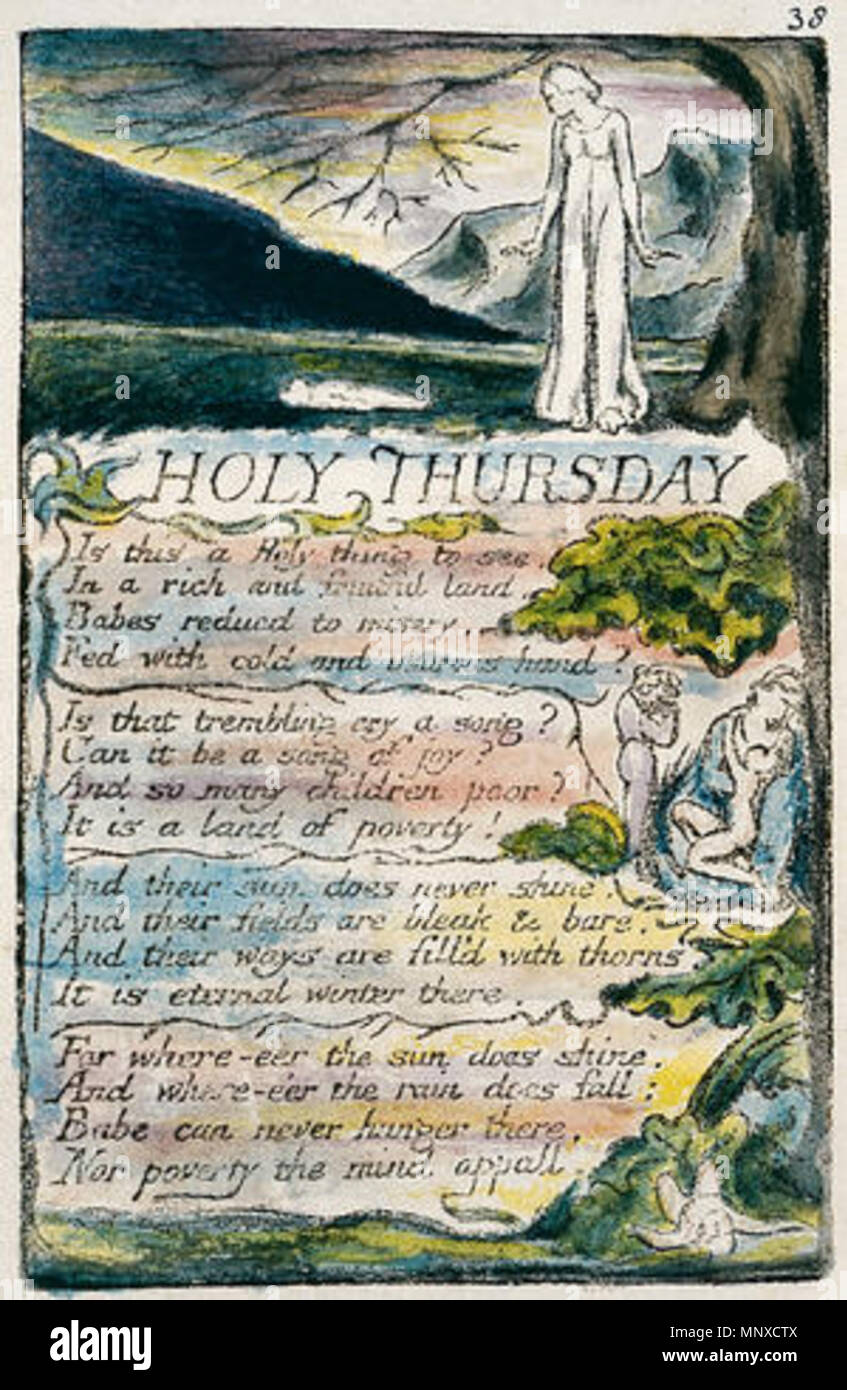 38
HOLY THURSDAY
Is this a Holy thing to see.
In a rich and fruitful land.
Babes reduced to misery.
Fed with cold and usurous hand?
Is that trembling cry a song?
Can it be a song of joy?
And so many children poor?
It is a land of poverty!
And their sun does never shine.
And their fields are bleak & bare.
And their ways are fill'd with thorns
It is eternal winter there.
For where-e'er the sun does shine.
And where-e'er the rain does fall:
Babe can never hunger there,
Nor poverty the mind appall.
a
alamy
alamy
Image ID: MNXCTX
www.alamy.com